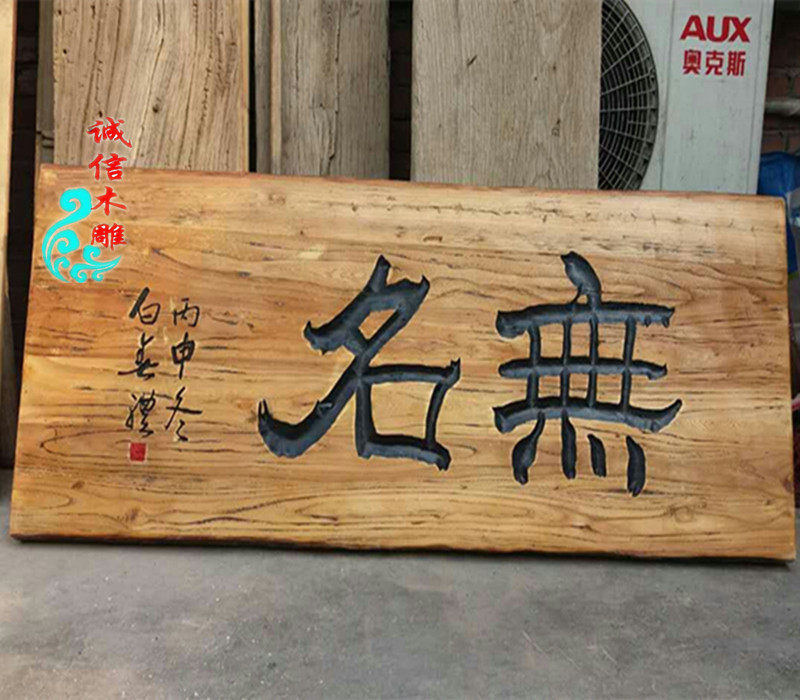 AUX
奥克斯
诚信木雕
無名
丙申冬
白善禮